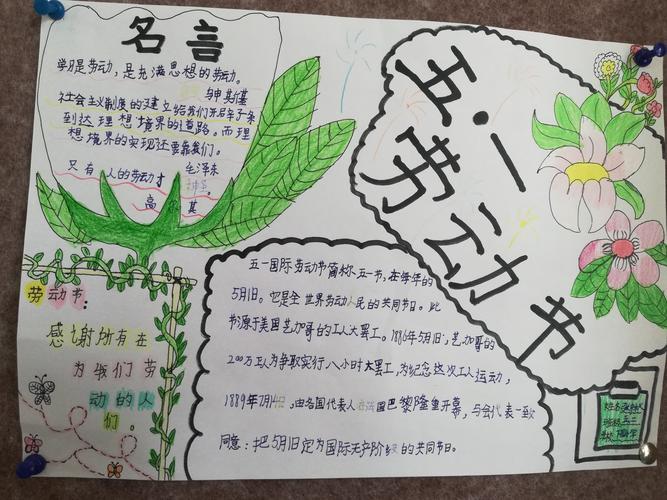 名言
学习是劳动，是充满思想的劳动。
乌申斯基
社会主义制度的建立给我们开启了一条
到达理想境界的道路。而理
想境界的实现还要靠我们。
毛泽东
只有人的劳动才神圣。
高尔基
五·一
劳动节
劳动节：
感谢所有在
为我们劳
动的人
们。
五一国际劳动节简称五一节，在每年的
5月1日。它是全世界劳动人民的共同节日。此
节源于美国芝加哥的工人大罢工。1886年5月1日，芝加哥的
200万工人为争取实行八小时大罢工，为纪念这次工人运动，
1889年7月14日，由各国代表人在法国巴黎隆重开幕，与会代表一致
同意：把5月1日定为国际无产阶级的共同节日。